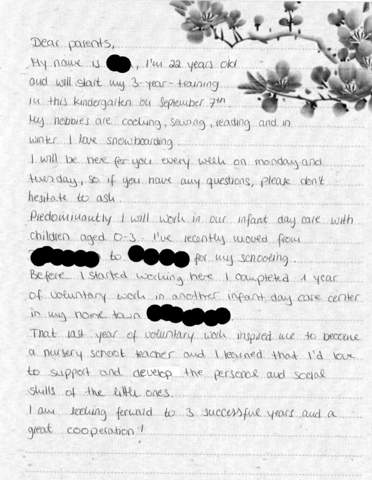 Dear parents,
My name is , I'm 22 years old
and will start my 3-year-training
in this kindergarten on September 7th
My hobbies are cooking, sewing, reading and in
winter I love snowboarding
I will be here for you every week on monday and
tuesday, so if you have any questions, please don't
hesitate to ask
Predominantly I will work in our infant day care with
children aged 0-3. I've recently moved from
to for my schooling.
Before I started working here I completed 1 year
of voluntary work in another infant day care center
in my home town
That last year of voluntary work inspired me to become
a nursery school teacher and I learned that I'd love
to support and develop the personal and social
skills of the little ones.
I am looking forward to 3 successful years and a
great cooperation!